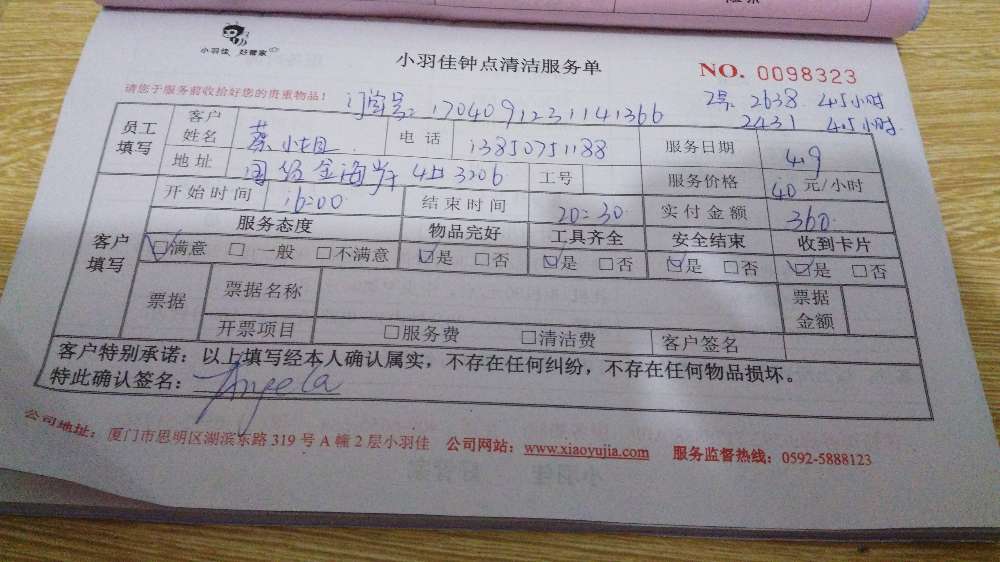 小羽佳 好管家
小羽佳钟点清洁服务单
NO. 0098323
请您于服务前收拾好您的贵重物品!
订单号: 1704091231141366
工号 2638 4.5小时
2431 4.5小时
员工填写 客户姓名 蔡小姐 电话 13850751188 服务日期 4.9
地址 国贸金海岸 4# 3206 工号 服务价格 40 元/小时
开始时间 16:00 结束时间 20:30 实付金额 360
客户填写 服务态度 物品完好 工具齐全 安全结束 收到卡片
☑满意 □一般 □不满意 ☑是 □否 ☑是 □否 ☑是 □否 ☑是 □否
票据 票据名称 票据金额
开票项目 □服务费 □清洁费 客户签名
客户特别承诺:以上填写经本人确认属实,不存在任何纠纷,不存在任何物品损坏。
特此确认签名: Angela
公司地址: 厦门市思明区湖滨东路 319 号 A 幢 2 层小羽佳 公司网站: www.xiaoyujia.com 服务监督热线: 0592-5888123